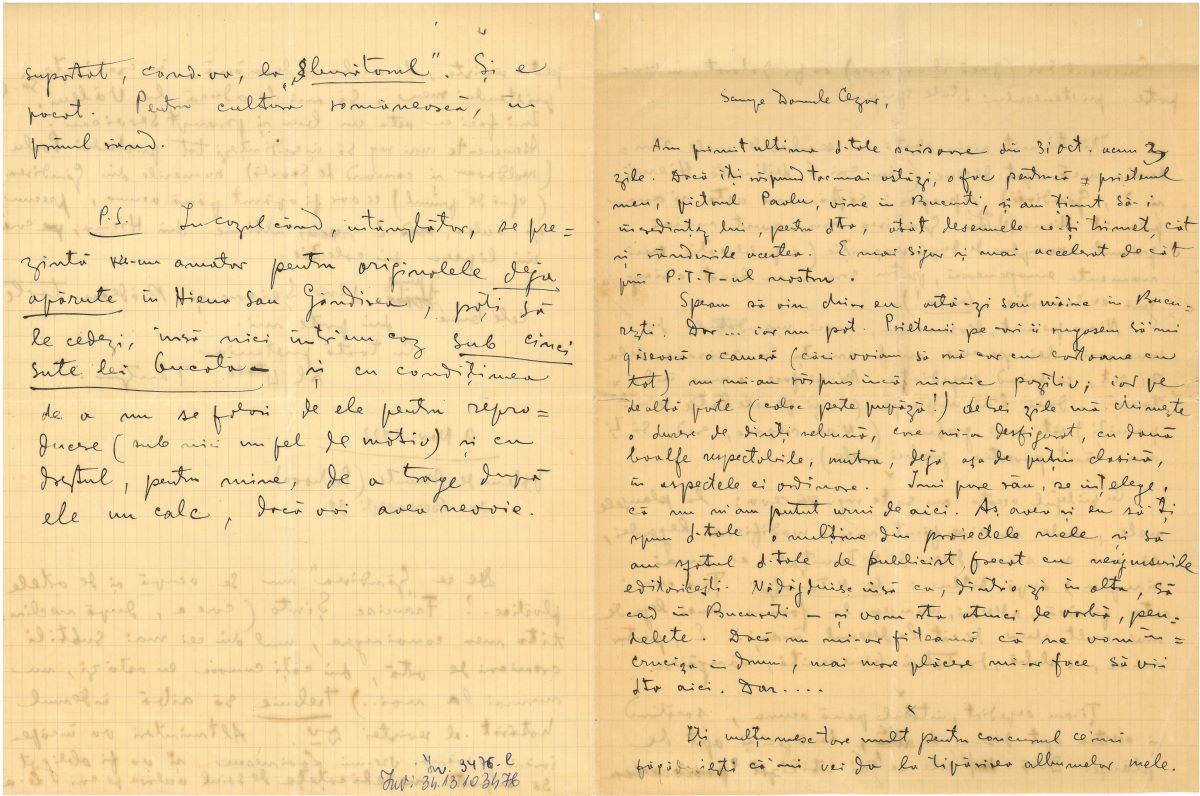 suportat, când-va, la „Sburătorul”. Și e
pocat. Pentru cultura românească, în
primul rând.
P.S. In cazul când, întâmplător, se pre=
zintă vr-un amator pentru originalele deja
apărute în Hiena sau Gândirea, poți să
le cedezi, însă nici într'un caz sub cinci
sute lei bucata — și cu condițiunea
de a nu se folosi de ele pentru repro=
ducere (sub nici un fel de motiv) și cu
dreptul, pentru mine, de a trage după
ele un calc, dacă voi avea nevoie.
Inv. 3476-c
Inv: 34.13.103476
Scumpe Domnule Cezar,
Am primit ultima d-tale scrisoare din 31 oct. acum 3
zile. Dacă îți răspund tocmai astăzi, o fac pentrucă prietenul
meu, pictorul Pavlu, vine în București, și am ținut să-i
încredințez lui, pentru dta, atât desemnele ce-ți trimet, cât
și rândurile acestea. E mai sigur și mai accelerat decât
prin P.T.T-ul nostru.
Speram să vin chiar eu astă-zi sau mâine în Bucu=
rești. Dar... iar nu pot. Prietenii pe cari îi rugasem să-mi
găsească o cameră (căci voiam să mă car cu cartoane cu
tot) nu mi-au răspuns încă nimic pozitiv; iar pe
de altă parte (colac peste pupăză!) de trei zile mă chinuește
o durere de dinți nebună, care mi-a desfigurat, cu două
boalfe respectabile, mutra, deja așa de puțin clasică,
în aspectele ei ordinare. Imi pare rău, se înțelege,
că nu m-am putut urni de aici. Aș avea și eu să-ți
spun d-tale o mulțime din proiectele mele și să
am sfatul d-tale de publicist frecat cu neajunsurile
editoricești. Nădăjduesc însă ca, dintr'o zi în alta, să
cad în București — și vom sta atunci de vorbă, pen=
delete. Dacă nu mi-ar fi teamă că ne vom în=
crucișa în drum, mai mare plăcere mi-ar face să vii
dta aici. Dar....
Iți mulțumesc tare mult pentru concursul ce-mi
făgăduești că-mi vei da la tipărirea albumelor mele.